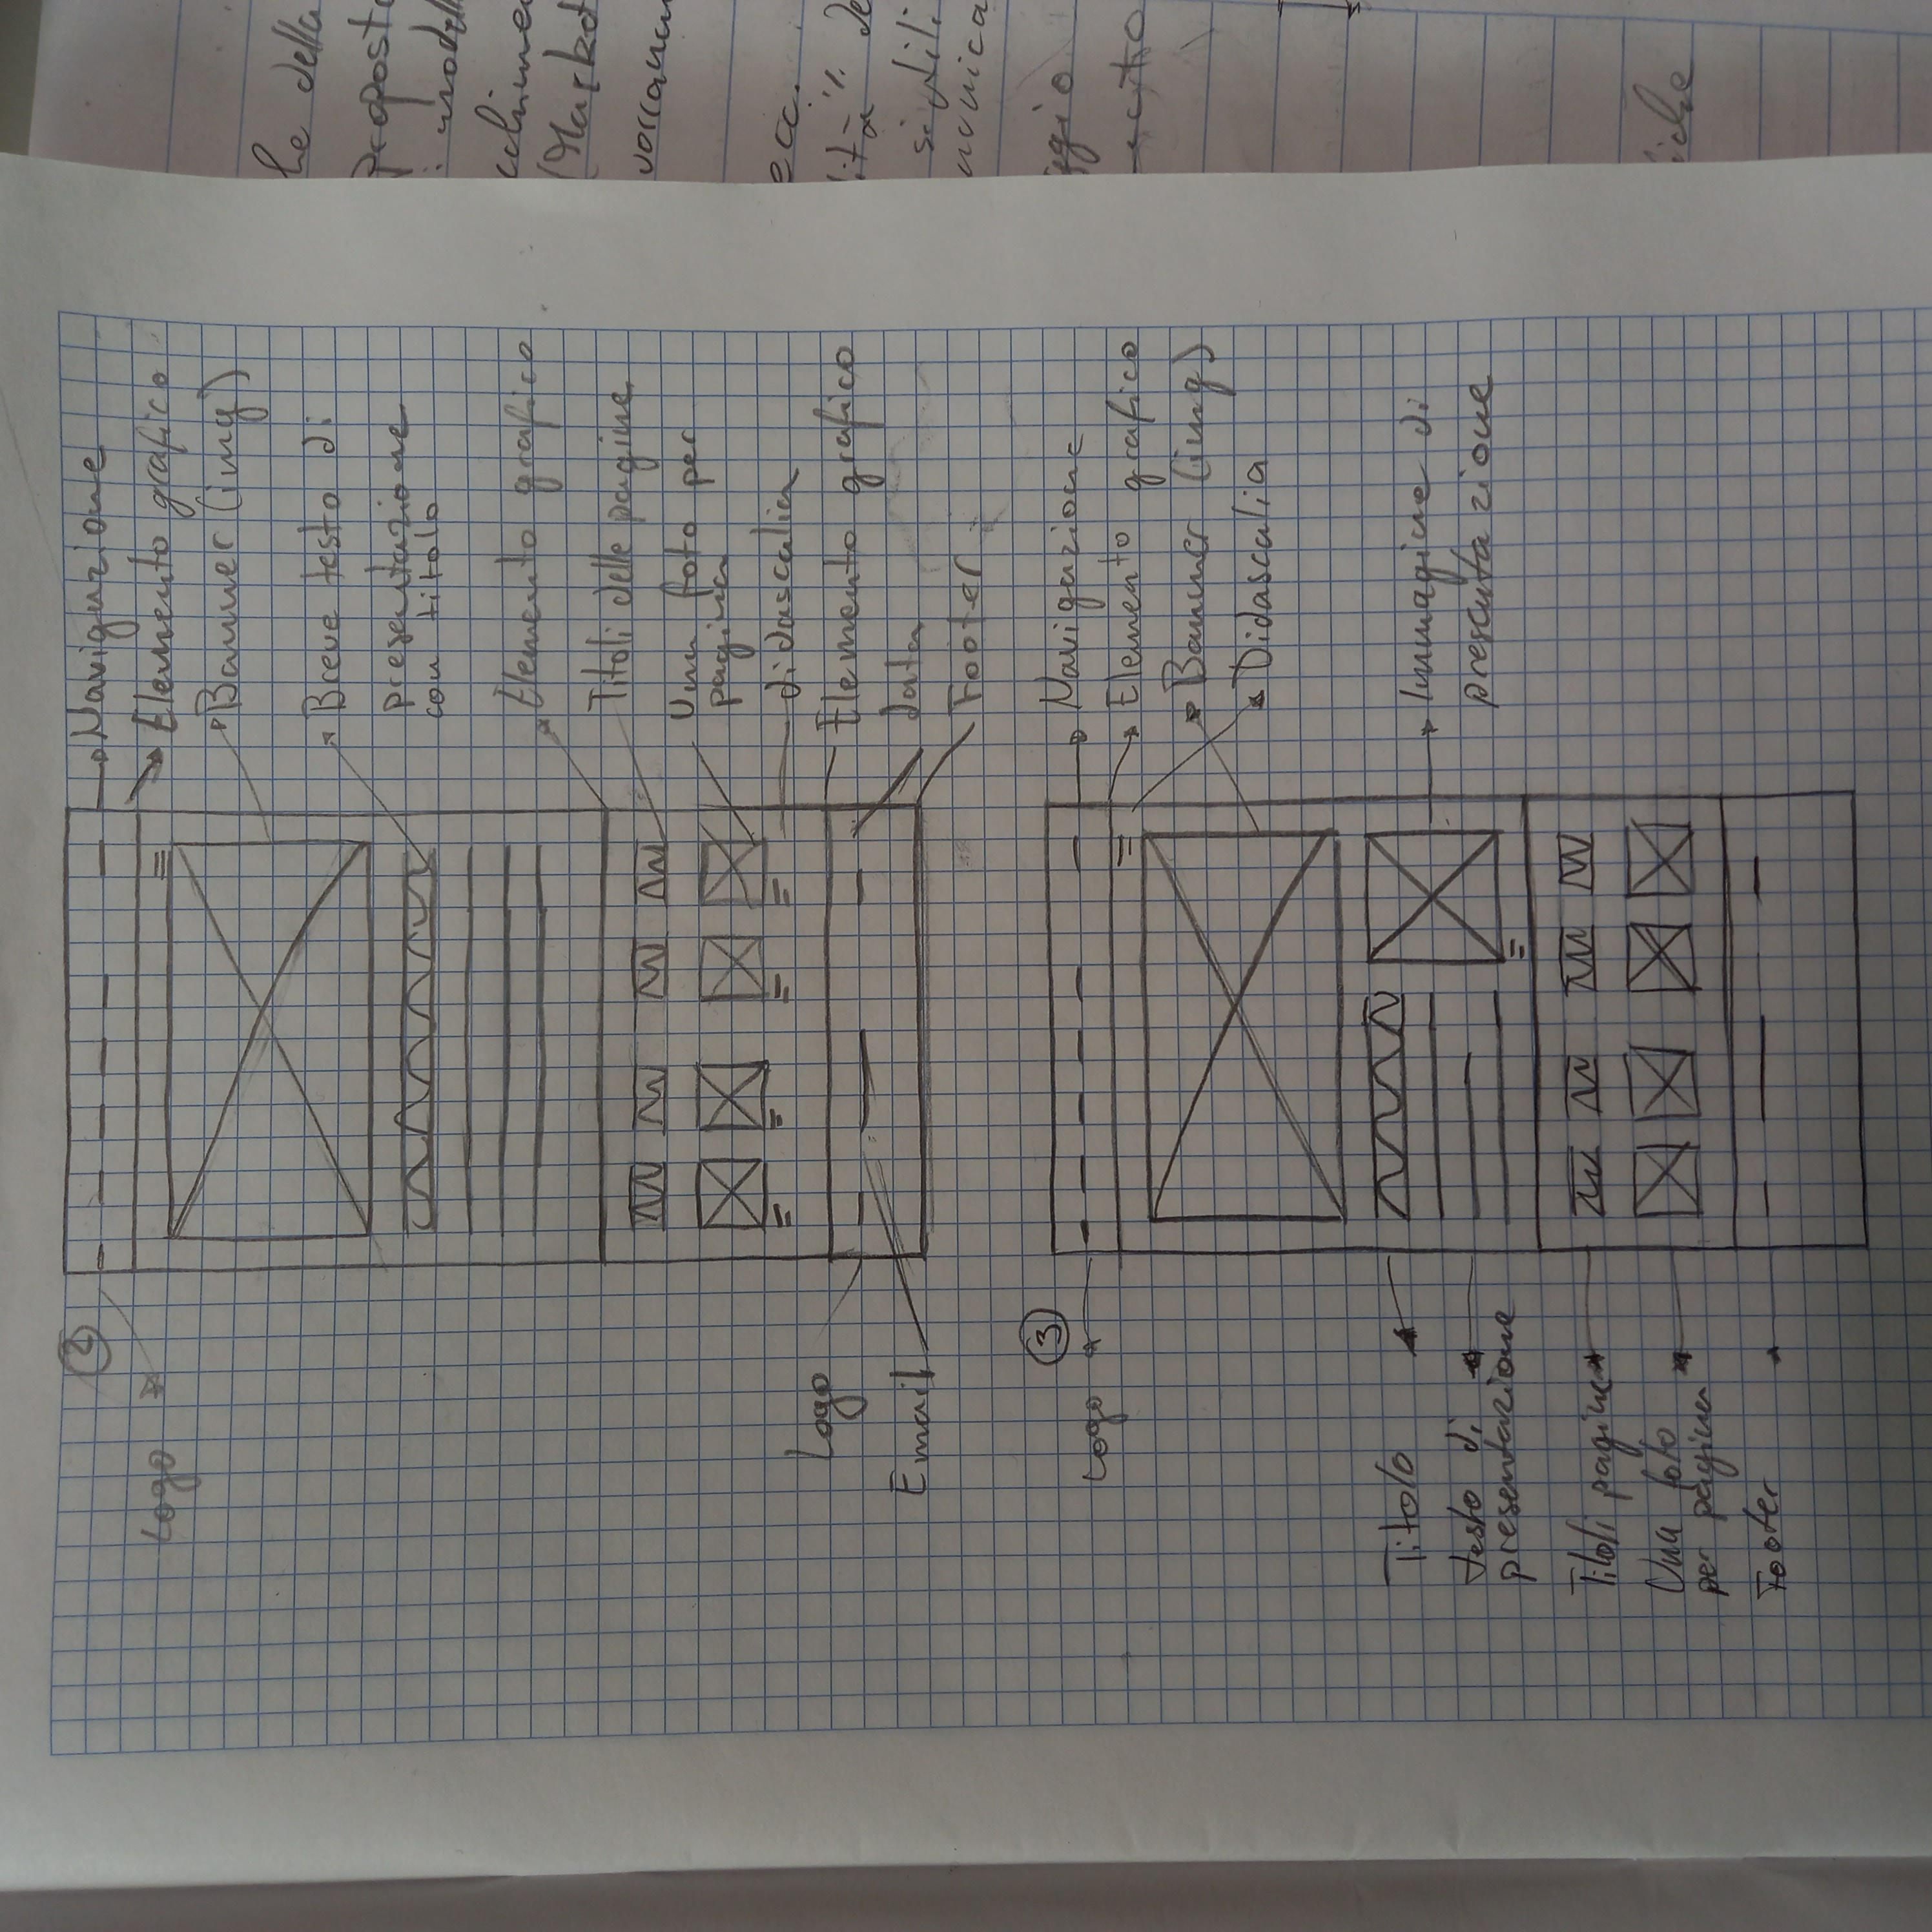 2
Navigazione
Logo
Elemento grafico
Banner (img)
Breve testo di
presentazione
con titolo
Elemento grafico
Titoli delle pagine
Una foto per
pagina
didascalia
Logo
Elemento grafico
Email
data
Footer
3
Navigazione
Logo
Elemento grafico
Banner (img)
Didascalia
Titolo
Immagine di
presentazione
testo di
presentazione
Titoli pagine
Una foto
per pagina
Footer
he della
propost
modell
(Market
vorrann
ecc.
si stili
ggio
iche